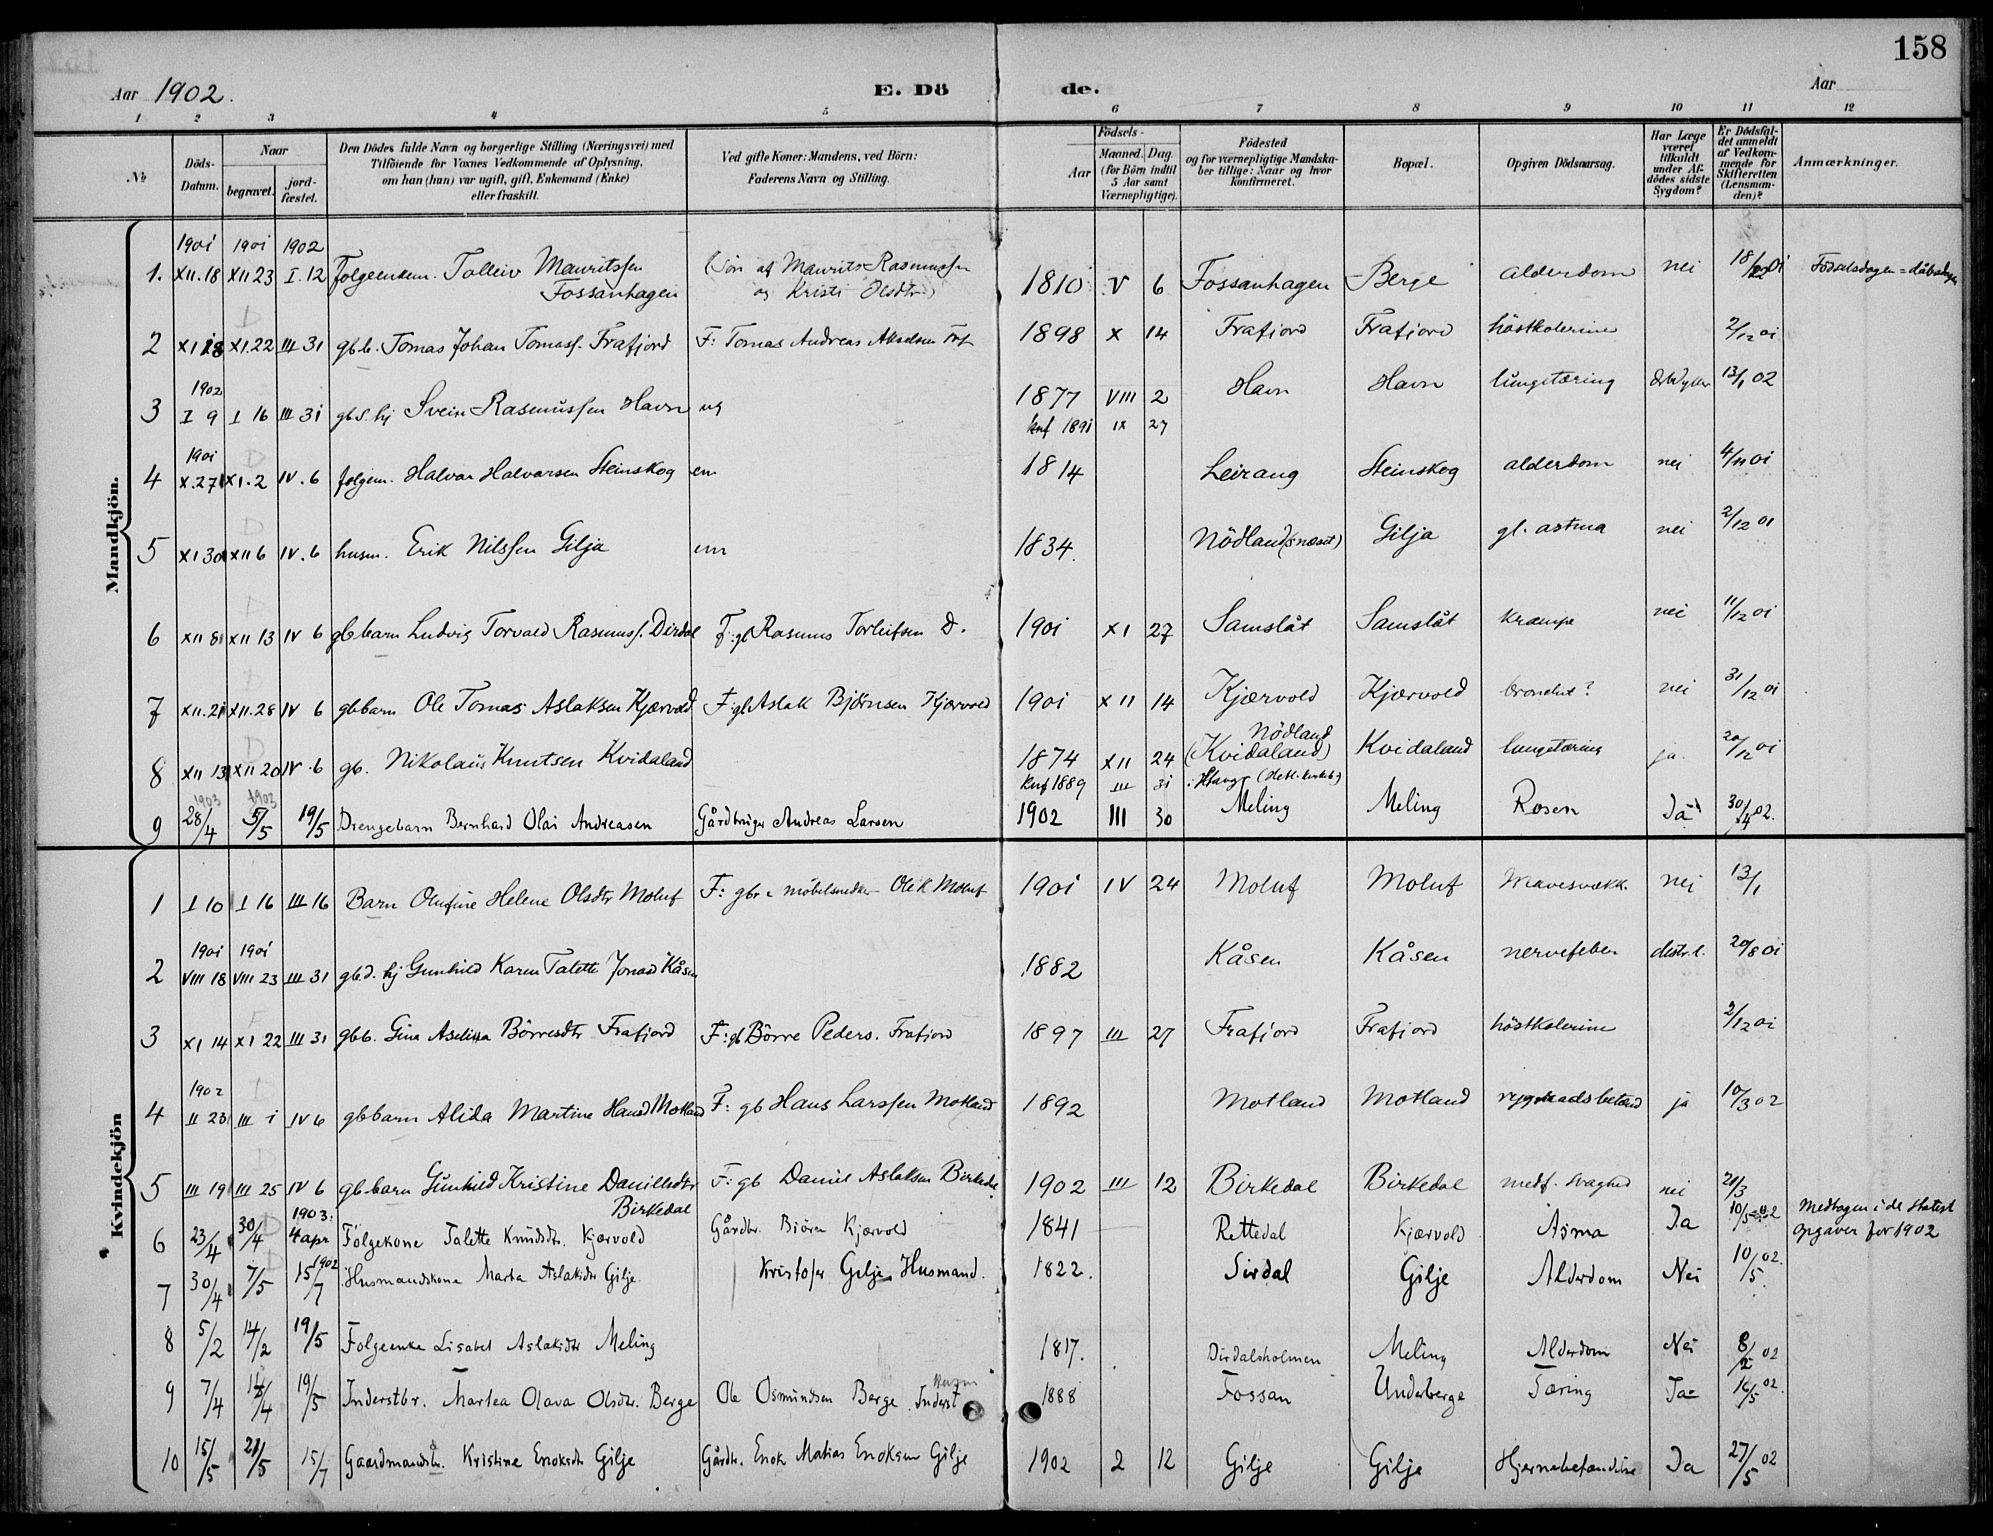 158
Aar 1902. E. Dö de. Aar
1 2 3 4 5 6 7 8 9 10 11 12
№ Döds-Datum. Naar begravet. jord-fæstet. Den Dödes fulde Navn og borgerlige Stilling (Næringsvei) med Tilföiende for Voxnes Vedkommende af Oplysning, om han (hun) var ugift, gift, Enkemand (Enke) eller fraskilt. Ved gifte Koner: Mandens, ved Börn: Faderens Navn og Stilling. Födsels- Aar Maaned. Dag. (for Börn indtil 5 Aar samt Værnepligtige). Födested og for værnepligtige Mandskaber tillige: Naar og hvor konfirmeret. Bopæl. Opgiven Dödsaarsag. Har Læge været tilkaldt under Afdödes sidste Sygdom? Er Dödsfaldet anmeldt af Vedkommende for Skifteretten (Lensmanden)? Anmærkninger.
Mandkjön.
1901 1901 1902
1. XII.18 XII 23 I.12 Folgeenkem. Tolleiv Mauritssen Fossanhagen (Sön af Maurits Rasmussen og Kristi Olsdtr) 1810 V 6 Fossanhagen Berge alderdom nei 18/12 01 Födselsdagen = dåbsdagen
2 XI 18 XI.22 III 31 gbb. Tomas Johan Tomass. Frafjord F: Tomas Andreas Akselsen Frf 1898 X 14 Frafjord Frafjord höstkolerine 2/12 01
1902
3 I 9 I 16 III 31 gbS. hj Svein Rasmussen Havn ug 1877 VIII 2 Havn Havn lungetæring 13/1 02
knf 1891 IX 27
1901
4 X.27 XI.2 IV.6 folgem. Halvar Halvorsen Steinskog em 1814 Leirang Steinskog alderdom nei 4/11 01
5 XI 30 XII 6 IV.6 husm. Erik Nilssen Gilja em 1834. Nödland Gilja gl. astma nei 2/12 01
6 XII 8 XII 13 IV 6 gbbarn Ludvig Torvald Rasmuss. Dirdal F: gb Rasmus Torleifsen D. 1901 XI 27 Samslåt Samslåt krampe nei 11/12 01
7 XII.21 XII.28 IV 6 gbbarn Ole Tomas Aslaksen Kjærvold F: gb Aslak Björnsen Kjærvold 1901 XII 14 Kjærvold Kjærvold bronchit? nei 31/12 01
8 XII 13 XII 20 IV.6 gb. Nikolaus Knutsen Kvidaland 1874 XII 24 Nödland (Kvidaland) Kvidaland lungetæring ja. 20/12 01
Knf 1889 III 31
1903 1903
9 28/4 5/5 19/5 Drengebarn Bernhard Olai Andreasen Gårdbruger Andreas Larsen 1902 III 30 Meling Meling Rosen Ja 30/4 02.
Kvindekjön
1 I 10 I 16 III 16 Barn Olufine Helene Olsdtr Moluf F: gbr & möbelsnedker Ole K Moluf 1901 IV 24 Moluf Moluf Mavesvækk. nei 13/1
1901 1901
2 VIII 18 VIII 23 III 31 gbd. hj Gunhild Karen Talette Jonasd Kåsen 1882 Kåsen Kåsen nervefeber distr.l. 20/8 01
3 XI 14 XI 22 III 31 gbb. Gina Aselina Börresdtr Frafjord F: gb Börre Peders. Frafjord 1897 III 27 Frafjord Frafjord höstkolerine 2/12 01
1902
4 II 23 III 1 IV 6 gbbarn Alida Martine Hansd Motland F: gb Hans Larssen Motland 1892 Motland Motland ja 10/3 02
5 III 19 III 25 IV 6 gbbarn Gunhild Kristine Danielsdtr Birkedal F: gb Daniel Aslaksen Birkedal 1902 III 12 Birkedal Birkedal medf. svaghed nei 21/3
1903.
6 23/4 30/4 4 apr Fölgekone Talette Knudsdtr. Kjærvold Gårdbr. Björn Kjærvold 1841 Rettedal Kjærvold Asma Ja 10/5 02 Medtagen i de statist opgaver for 1902
1902
7 30/4 7/5 15/7 Husmandskone Marta Aslaksdtr Gilje Kristofer Gilje Husmand. 1822. Sirdal Gilje Alderdom Nei 10/5 02.
8 5/2 14/2 19/5 Folgeenke Lisabet Aslaksdtr Meling 1817. Dirdalsholmen Meling Alderdom Nei 8/2 02
9 7/4 19/5 Inderstbr. Martea Olava Olsdtr. Berge Ole Osmundsen Berge Inderst 1888 Fossan Underberge Tæring Ja 16/5 02.
10 15/5 21/5 15/7 Gaardmandsbr. Kristine Enoksdtr Gilje Gårdbr. Enok Matias Enoksen Gilje 1902 2 12 Gilje Gilje Hjernebetændelse Ja 27/5 02